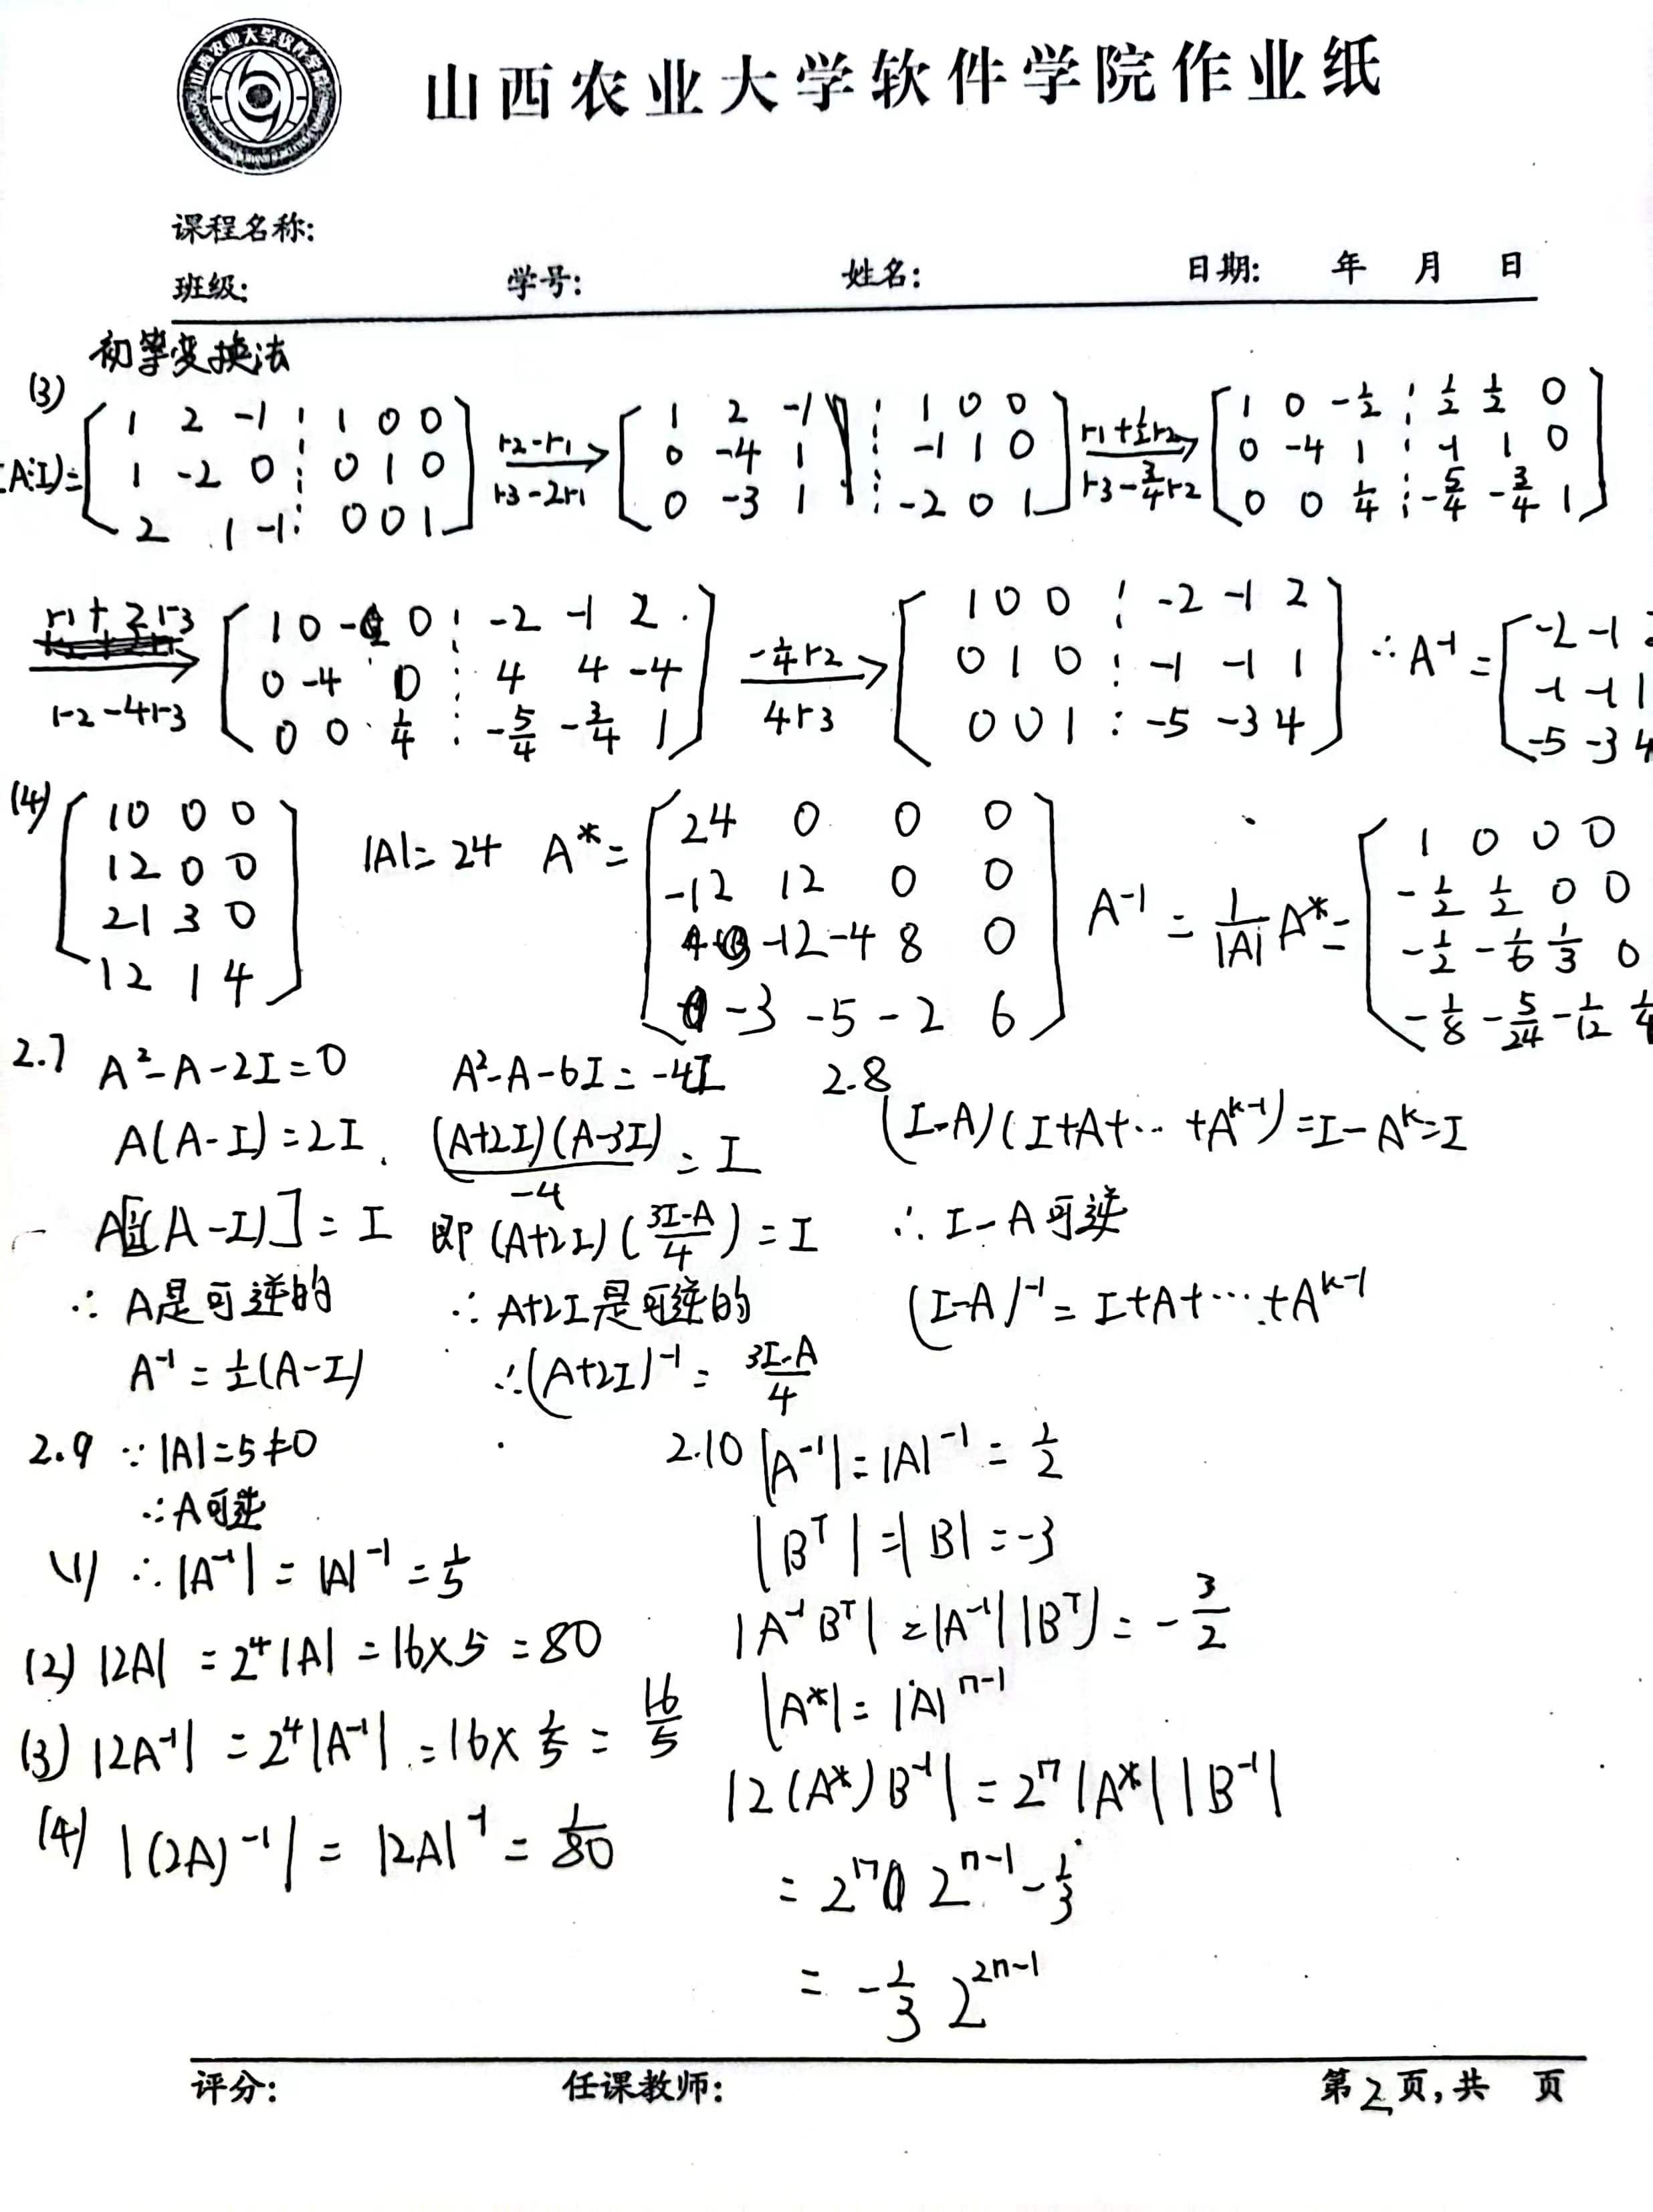 山西农业大学软件学院作业纸
课程名称:
班级: 学号: 姓名: 日期: 年 月 日
初等变换法
(3)
(A⋮I)= [1 2 -1 ⋮ 1 0 0; 1 -2 0 ⋮ 0 1 0; 2 1 -1 ⋮ 0 0 1] →(r2-r1, r3-2r1) [1 2 -1 ⋮ 1 0 0; 0 -4 1 ⋮ -1 1 0; 0 -3 1 ⋮ -2 0 1] →(r1+½r2, r3-¾r2) [1 0 -½ ⋮ ½ ½ 0; 0 -4 1 ⋮ -1 1 0; 0 0 ¼ ⋮ -5/4 -3/4 1]
→(r1+2r3, r2-4r3) [1 0 0 ⋮ -2 -1 2; 0 -4 0 ⋮ 4 4 -4; 0 0 ¼ ⋮ -5/4 -3/4 1] →(-¼r2, 4r3) [1 0 0 ⋮ -2 -1 2; 0 1 0 ⋮ -1 -1 1; 0 0 1 ⋮ -5 -3 4] ∴ A⁻¹ = [-2 -1 2; -1 -1 1; -5 -3 4
(4) [1 0 0 0; 1 2 0 0; 2 1 3 0; 1 2 1 4] |A|=24 A*= [24 0 0 0; -12 12 0 0; -12 -4 8 0; -3 -5 -2 6] A⁻¹ = 1/|A| A* = [1 0 0 0; -½ ½ 0 0; -½ -1/6 1/3 0; -1/8 -5/24 -1/12 1/4
2.7 A²-A-2I=0
A(A-I)=2I
A[½(A-I)]=I
∴ A是可逆的
A⁻¹=½(A-I)
A²-A-6I=-4I
(A+2I)(A-3I)/-4 = I
即 (A+2I)((3I-A)/4)=I
∴ A+2I是可逆的
∴(A+2I)⁻¹= (3I-A)/4
2.8
(I-A)(I+A+⋯+Aᵏ⁻¹)=I-Aᵏ=I
∴ I-A可逆
(I-A)⁻¹=I+A+⋯+Aᵏ⁻¹
2.9 ∵|A|=5≠0
∴A可逆
(1) ∴|A⁻¹|=|A|⁻¹=1/5
(2) |2A|=2⁴|A|=16×5=80
(3) |2A⁻¹|=2⁴|A⁻¹|=16×1/5=16/5
(4) |(2A)⁻¹|=|2A|⁻¹=1/80
2.10 |A⁻¹|=|A|⁻¹=1/2
|Bᵀ|=|B|=-3
|A⁻¹Bᵀ|=|A⁻¹||Bᵀ|=-3/2
|A*|=|A|ⁿ⁻¹
|2(A*)B⁻¹|=2ⁿ|A*||B⁻¹|
=2ⁿ 2ⁿ⁻¹ -1/3
=-1/3 2²ⁿ⁻¹
评分: 任课教师: 第2页,共 页